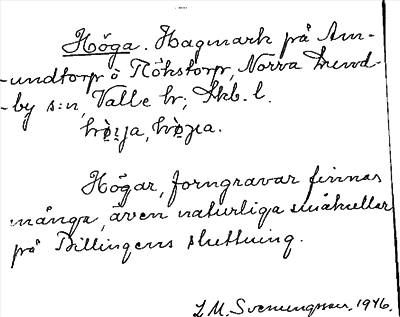 Höga. Hagmark på Am-
undtorp o Nökstorp, Norra Lund-
by s:n, Valle hr; Skb. l.
Högar, forngravar finnas
många, även naturliga småkullar
på Billingens sluttning.
L.M. Svenungsson, 1946.